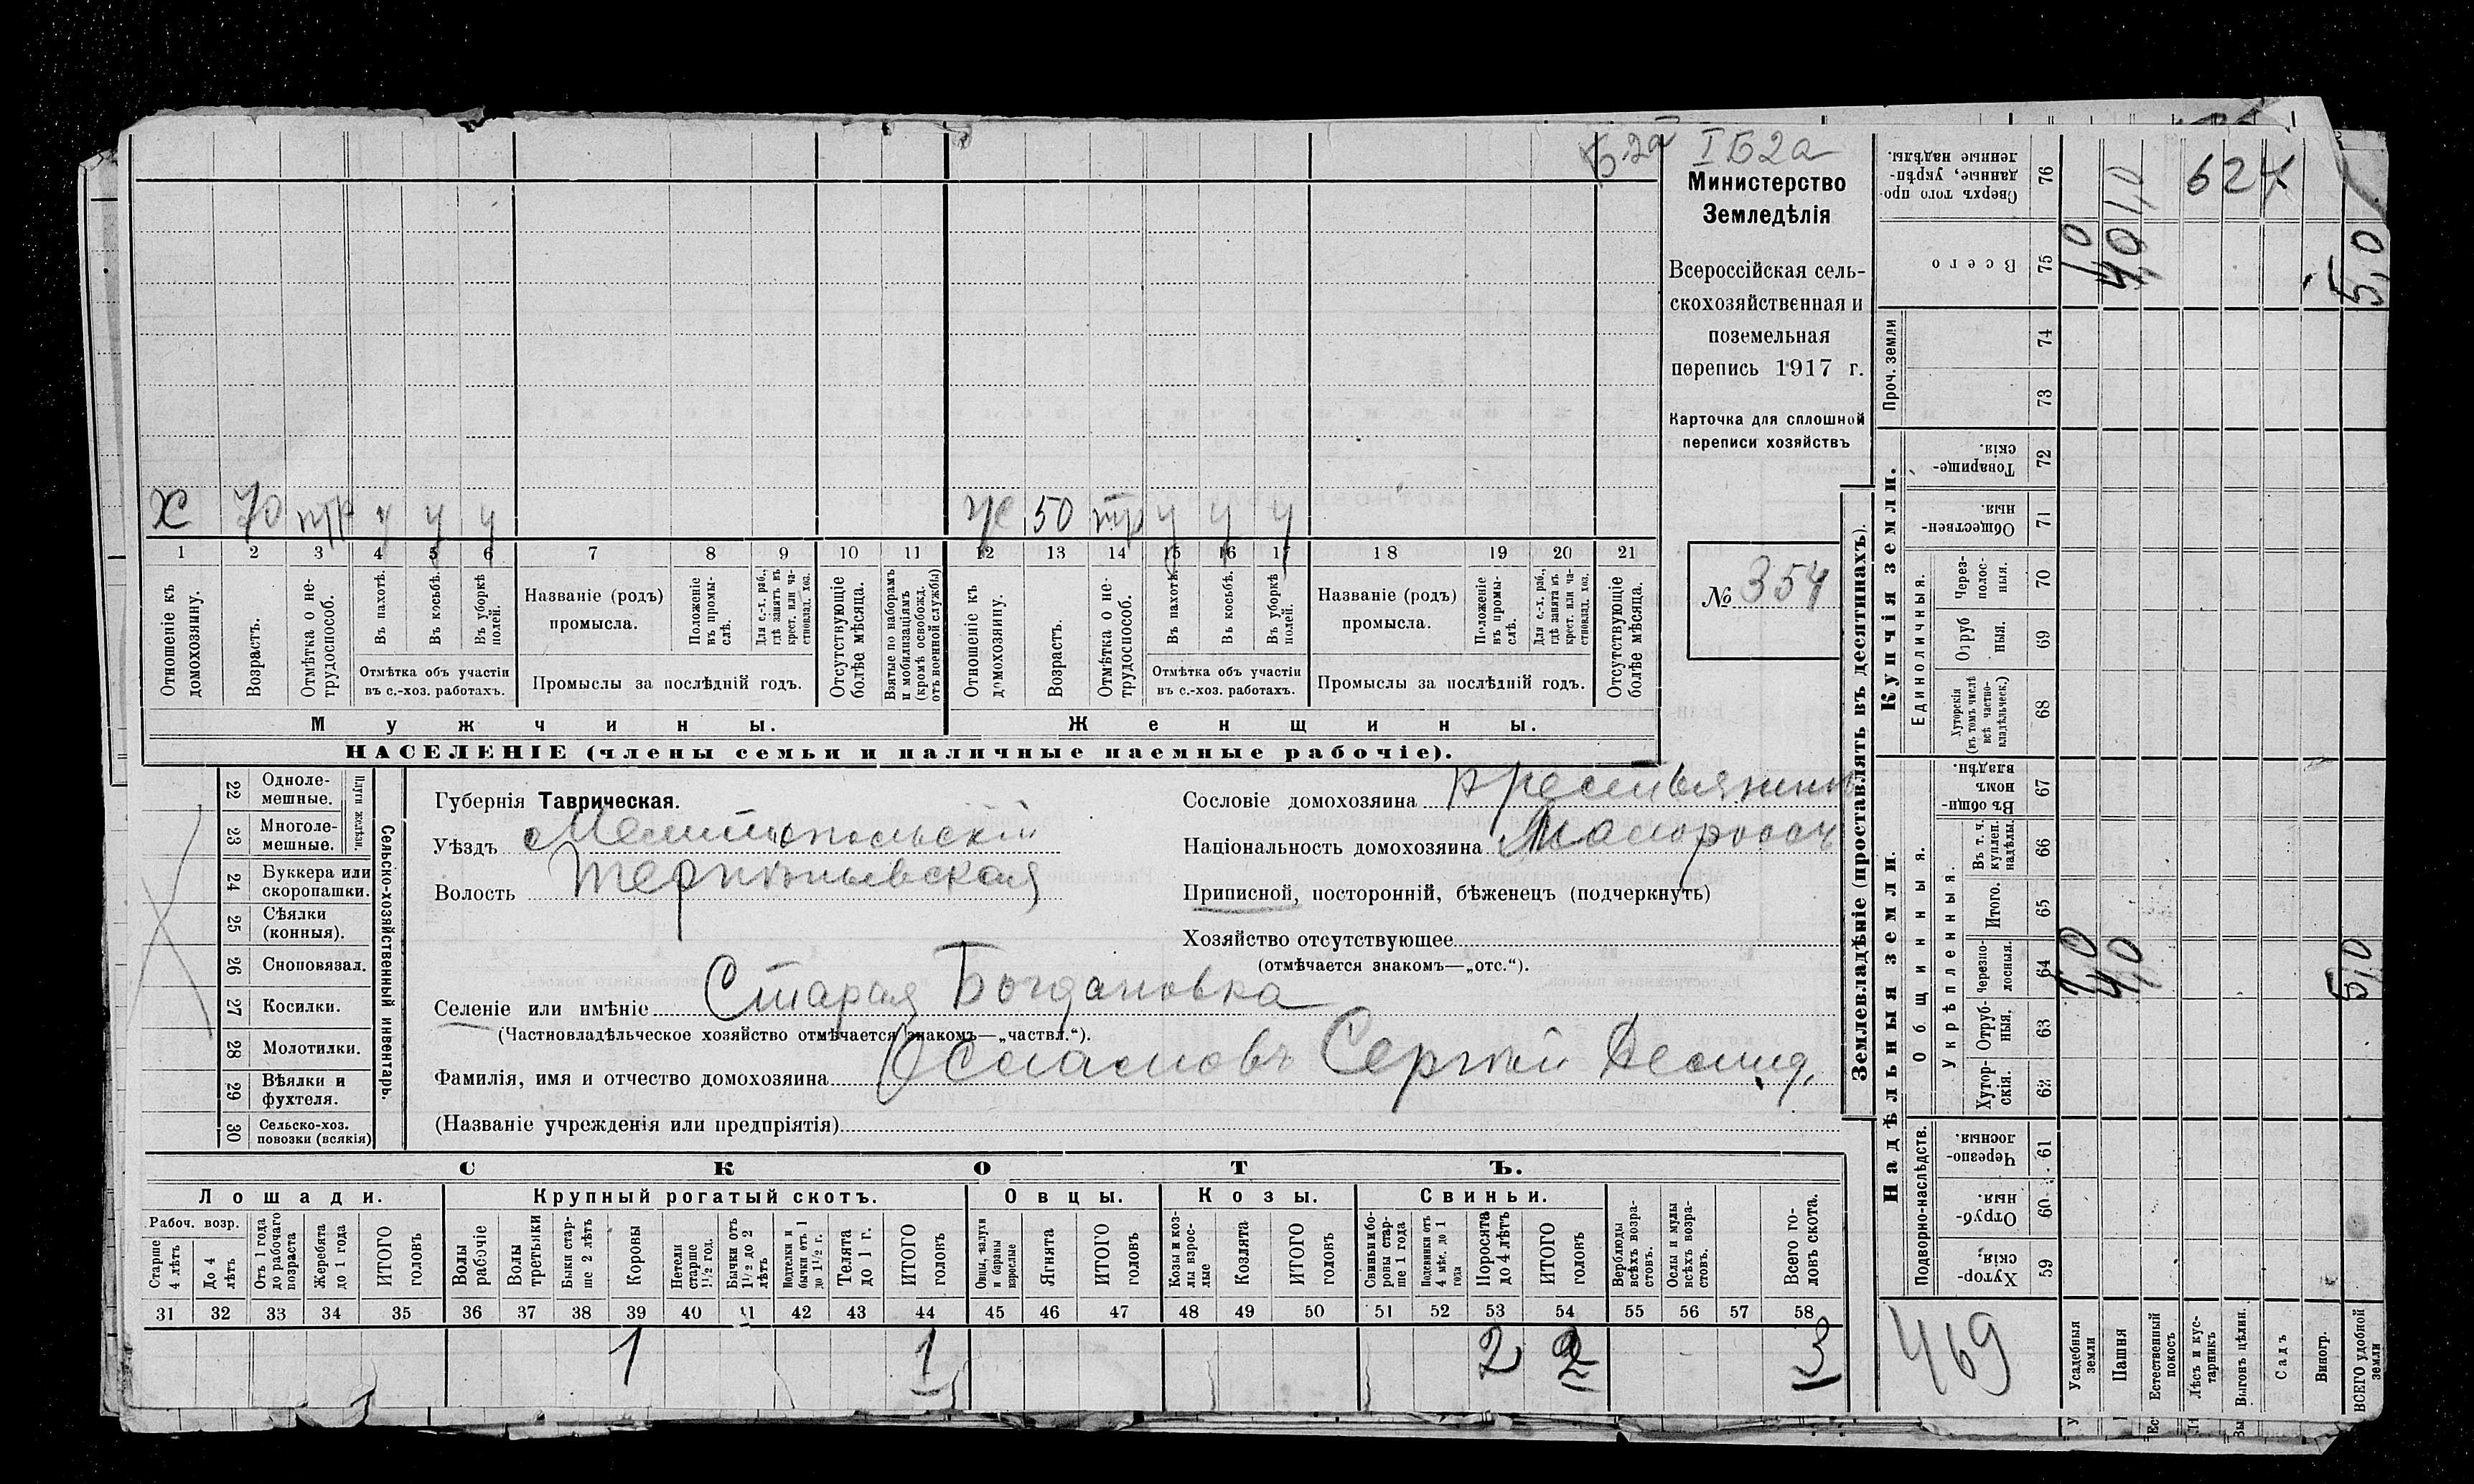 Б 2а
I Б 2а
Министерство
Земледѣлія
Всероссійская сель-
скохозяйственная и
поземельная
перепись 1917 г.
Карточка для сплошной
переписи хозяйствъ
№ 354
х 70 тр у у у
же 50 тр у у у
1 2 3 4 5 6 7 8 9 10 11 12 13 14 15 16 17 18 19 20 21
Отношеніе къ домохозяину.
Возрастъ.
Отмѣтка о не-трудоспособ.
Въ пахотѣ.
Въ косьбѣ.
Въ уборкѣ полей.
Отмѣтка объ участіи
въ с.-хоз. работахъ.
Названіе (родъ)
промысла.
Положеніе въ промы-слѣ.
Для с.-х. раб., гдѣ занятъ въ крест. или ча-стновлад. хоз.
Промыслы за послѣдній годъ.
Отсутствующіе болѣе мѣсяца.
Взятые по наборамъ и мобилизаціямъ (кромѣ освобожд. отъ военной службы)
Отношеніе къ домохозяину.
Возрастъ.
Отмѣтка о не-трудоспособ.
Въ пахотѣ.
Въ косьбѣ.
Въ уборкѣ полей.
Отмѣтка объ участіи
въ с.-хоз. работахъ.
Названіе (родъ)
промысла.
Положеніе въ промы-слѣ.
Для с.-х. раб., гдѣ занята въ крест. или ча-стновлад. хоз.
Промыслы за послѣдній годъ.
Отсутствующіе болѣе мѣсяца.
Мужчины.
Женщины.
НАСЕЛЕНІЕ (члены семьи и наличные наемные рабочіе).
22 Одноле-мешные.
23 Многоле-мешные.
Плуги желѣзн.
24 Буккера или скоропашки.
25 Сѣялки (конныя).
26 Сноповязал.
27 Косилки.
28 Молотилки.
29 Вѣялки и фухтеля.
30 Сельско-хоз. повозки (всякія)
Сельско-хозяйственный инвентарь.
Губернія Таврическая.
Уѣздъ Мелитопольскій
Волость Терпѣньевская
Сословіе домохозяина Крестьянинъ
Національность домохозяина Малороссъ
Приписной, посторонній, бѣженецъ (подчеркнуть)
Хозяйство отсутствующее
(отмѣчается знакомъ—„отс.“).
Селеніе или имѣніе Старая Богдановка
(Частновладѣльческое хозяйство отмѣчается знакомъ—„частвл.“).
Фамилія, имя и отчество домохозяина Осламовъ Сергѣй Демид.
(Названіе учрежденія или предпріятія)
СКОТЪ.
Лошади. Крупный рогатый скотъ. Овцы. Козы. Свиньи.
Рабоч. возр.
Старше 4 лѣтъ
До 4 лѣтъ
Отъ 1 года до рабочаго возраста
Жеребята до 1 года
ИТОГО головъ
Волы рабочіе
Волы третьяки
Быки стар-ше 2 лѣтъ
Коровы
Нетели старше 1½ год.
Бычки отъ 1½ до 2 лѣтъ
Подтелки и бычки отъ 1 до 1½ г.
Телята до 1 г.
ИТОГО головъ
Овцы, валухи и бараны взрослые
Ягнята
ИТОГО головъ
Козы и коз-лы взрос-лые
Козлята
ИТОГО головъ
Свиньи и бо-ровы стар-ше 1 года
Подсвинки отъ 4 мѣс. до 1 года
Поросята до 4 лѣтъ
ИТОГО головъ
Верблюды всѣхъ возра-стовъ.
Ослы и мулы всѣхъ возра-стовъ.
Всего го-ловъ скота.
31 32 33 34 35 36 37 38 39 40 41 42 43 44 45 46 47 48 49 50 51 52 53 54 55 56 57 58
1 1 2 2 3
Землевладѣніе (проставлять въ десятинахъ).
Купчія земли.
Надѣльныя земли.
Сверхъ того про-данные, укрѣп-ленные надѣлы. 76
Всего 75
Проч. земли
74
73
Товарище-скія. 72
Обществен-ныя. 71
Единоличныя.
Через-полос-ныя. 70
Отруб ныя. 69
Хуторскія (въ томъ числѣ всѣ частно-владѣльческ.) 68
Общинныя.
Въ общин-номъ владѣн. 67
Укрѣпленныя.
Въ т. ч. куплен. надѣлы. 66
Итого. 65
Черезпо-лосныя. 64
Отруб-ныя. 63
Хутор-скія. 62
Подворно-наслѣдств.
Черезпо-лосныя. 61
Отруб-ныя. 60
Хутор-скія. 59
469
Усадебныя земли
Пашня
Естественный покосъ
Лѣсъ и кус-тарникъ
Выгонъ цѣлин.
Садъ
Виногр.
ВСЕГО удобной земли
1,0 4,0 5,0
1,0 4,0 5,0
1,0
624